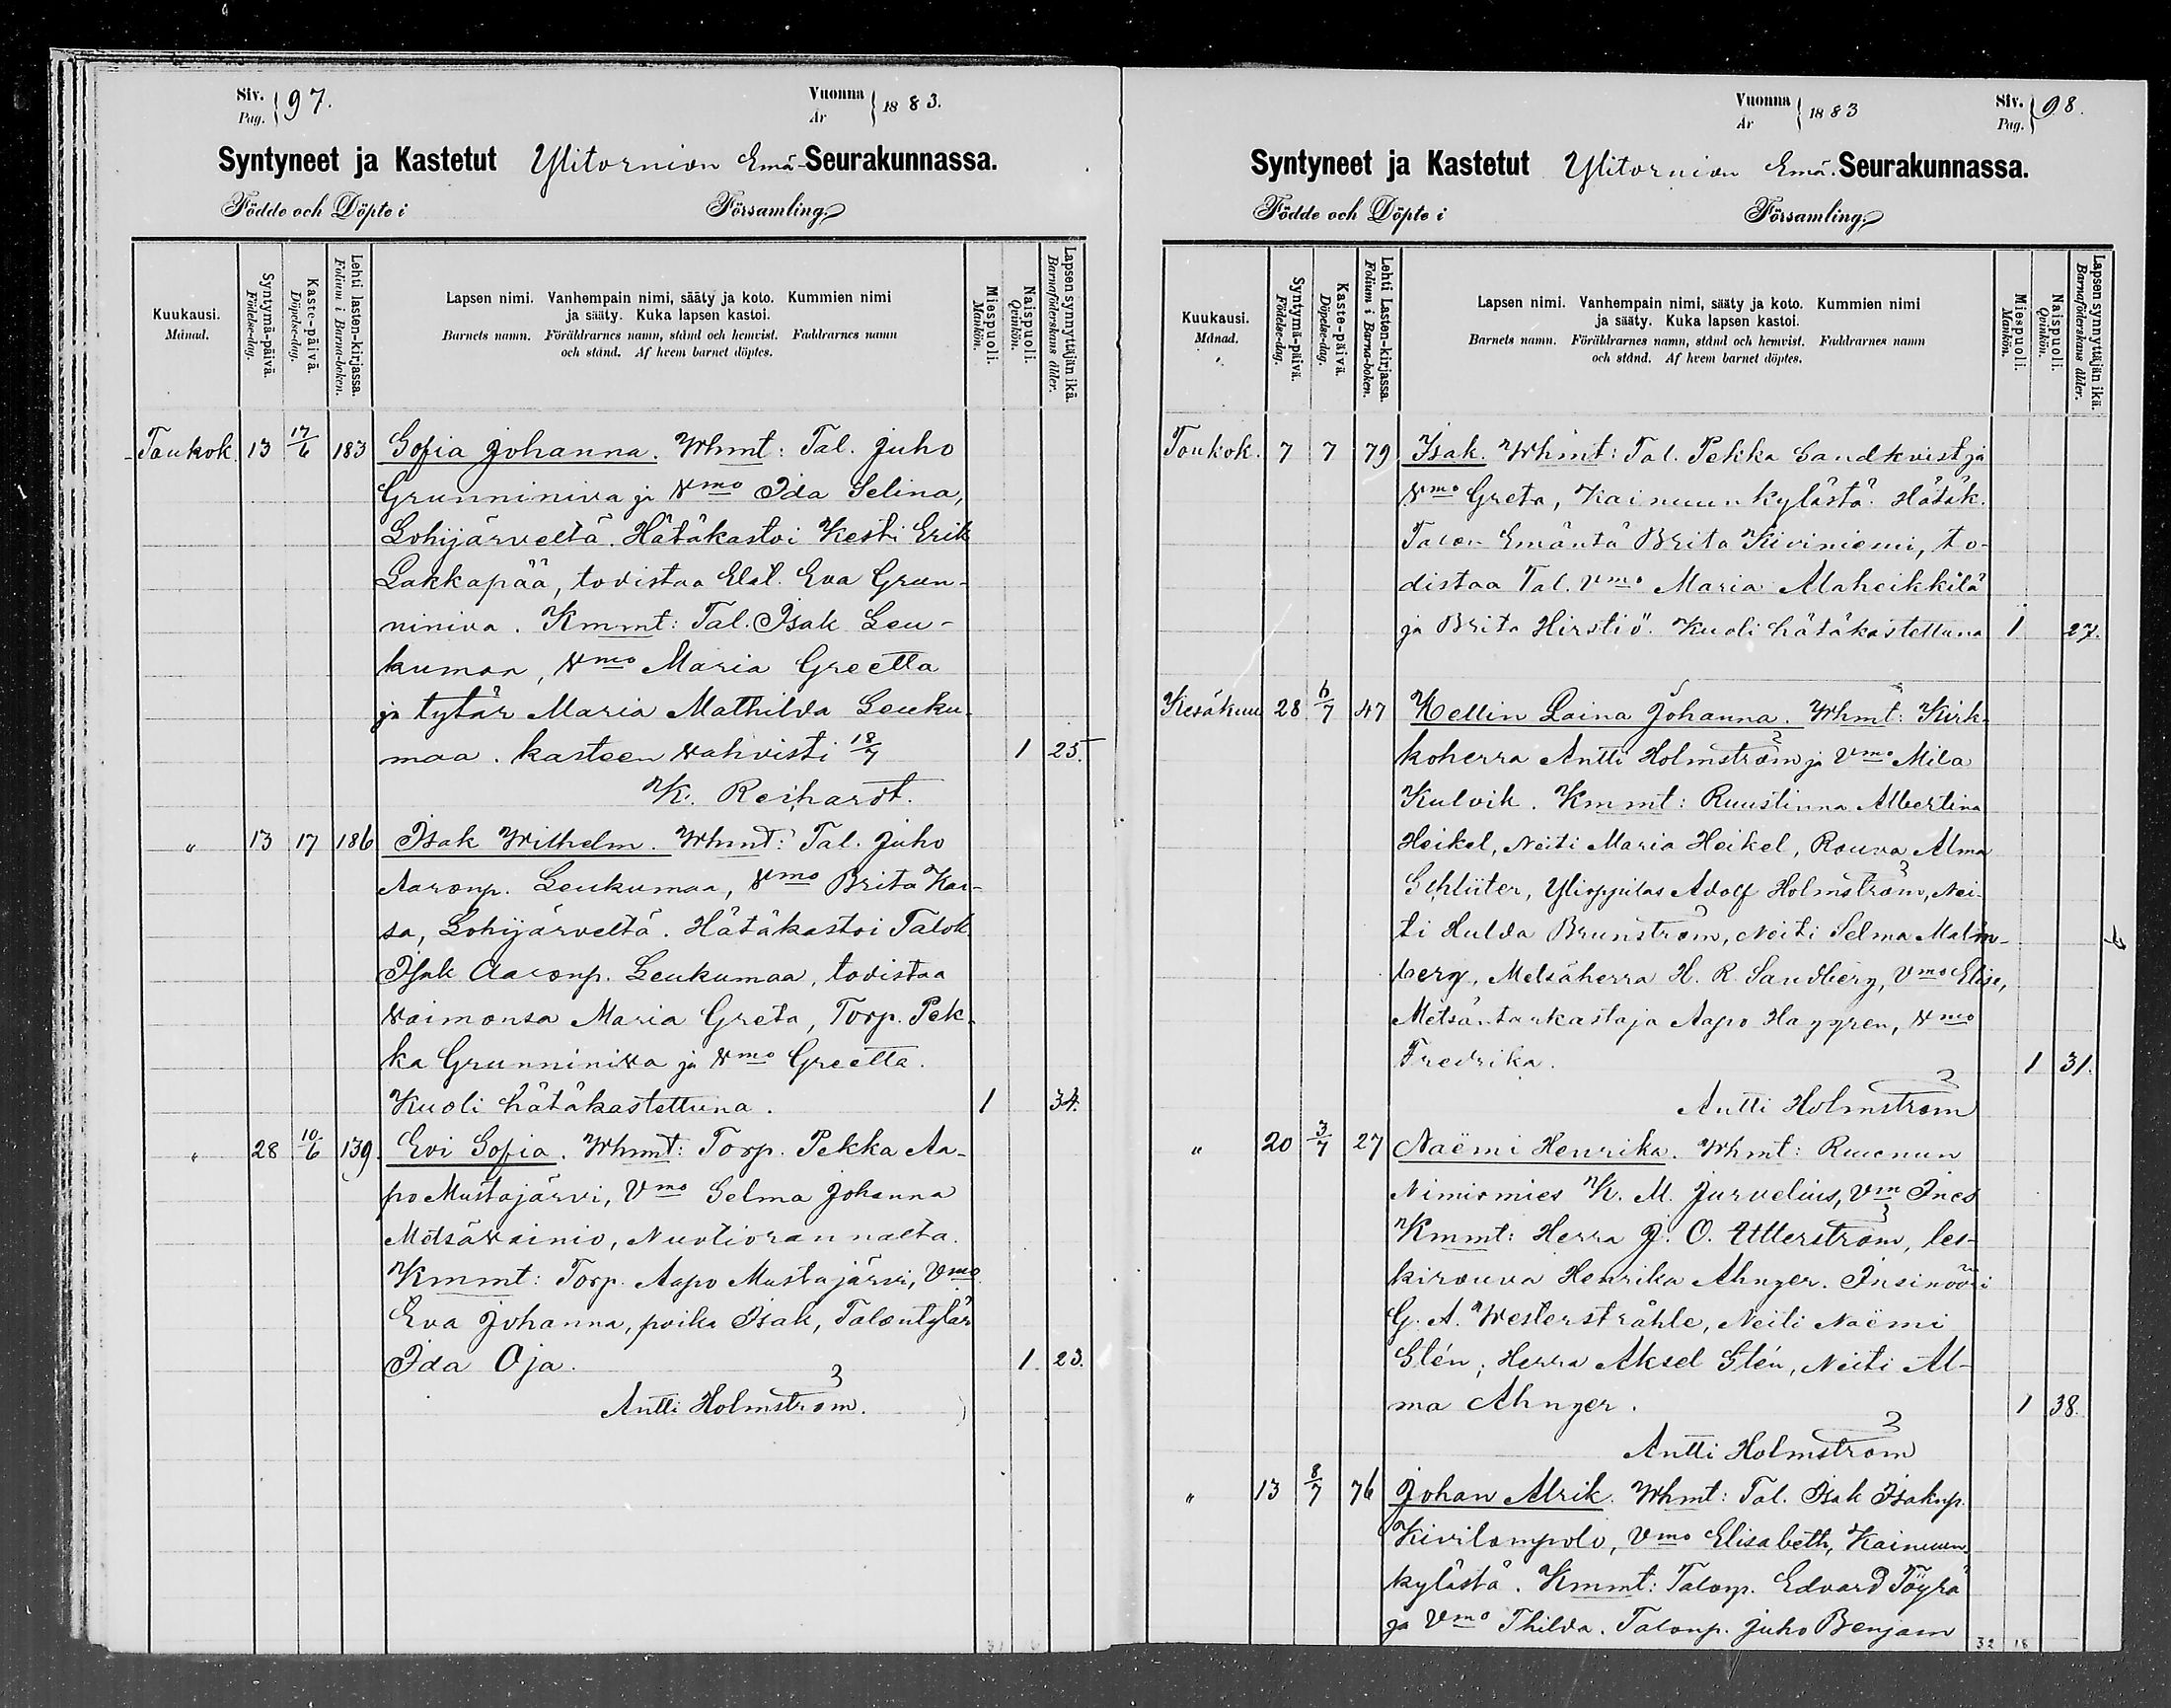 Siv. Pag. 97.
Vuonna År 1883.
Syntyneet ja Kastetut Ylitornion Emä-Seurakunnassa.
Födde och Döpte i Församling.
Kuukausi. Månad.
Syntymä-päivä. Födelse-dag.
Kaste-päivä. Döpelse-dag.
Lehti lasten-kirjassa. Folium i Barna-boken.
Lapsen nimi. Vanhempain nimi, sääty ja koto. Kummien nimi
ja sääty. Kuka lapsen kastoi.
Barnets namn. Föräldrarnes namn, stånd och hemvist. Faddrarnes namn
och stånd. Af hvem barnet döptes.
Miespuoli. Mankön.
Naispuoli. Qvinkön.
Lapsen synnyttäjän ikä. Barnaföderskans ålder.
Toukok. 13 17/6 183 Sofia Johanna. Whmt: Tal. Juho
Grunniniva ja Vmo Ida Selina,
Lohijärveltä. Hätäkastoi Kesti Erik
Lakkapää, todistaa Elät. Eva Grun-
niniva. Kmmt: Tal. Isak Leu-
kumaa, Vmo Maria Greetta
ja tytär Maria Mathilda Leuku-
maa. kasteen vahvisti 18/7 1 25.
K. Reihardt.
" 13 17 186 Isak Wilhelm. Whmt: Tal. Juho
Aaronp. Leukumaa, Vmo Brita Kai-
sa, Lohijärveltä. Hätäkastoi Talok.
Isak Aaronp. Leukumaa, todistaa
vaimonsa Maria Greta, Torp. Pek-
ka Grunniniva ja Vmo Greetta.
Kuoli hätäkastettuna. 1 34.
" 28 10/6 139. Evi Sofia. Whmt: Torp. Pekka Aa-
po Mustajärvi, Vmo Selma Johanna
Metsävainio, Nuotiorannalta.
Kmmt: Torp. Aapo Mustajärvi, Vmo
Eva Johanna, poika Isak, Talontytär
Ida Oja. 1. 23.
Antti Holmström.
Vuonna År 1883
Siv. Pag. 98.
Syntyneet ja Kastetut Ylitornion Emä-Seurakunnassa.
Födde och Döpte i Församling.
Kuukausi. Månad.
Syntymä-päivä. Födelse-dag.
Kaste-päivä. Döpelse-dag.
Lehti Lasten-kirjassa. Folium i Barna-boken.
Lapsen nimi. Vanhempain nimi, sääty ja koto. Kummien nimi
ja sääty. Kuka lapsen kastoi.
Barnets namn. Föräldrarnes namn, stånd och hemvist. Faddrarnes namn
och stånd. Af hvem barnet döptes.
Miespuoli. Mankön.
Naispuoli. Qvinkön.
Lapsen synnyttäjän ikä. Barnaföderskans ålder.
Toukok. 7 7 79 Isak. Whmt: Tal. Pekka Sandkvist ja
Vmo Greta, Kainuunkylästä. Hätäk.
Talon Emäntä Brita Kiviniemi, to-
distaa Tal. Vmo Maria Alaheikkilä
ja Brita Hirstiö. Kuoli hätäkastettuna 1 27.
Kesäkuu 28 6/7 47 Hellin Laina Johanna. Whmt: Kirk-
koherra Antti Holmström ja Vmo Mila
Kulvik. Kmmt: Ruustinna Albertina
Heikel, Neiti Maria Heikel, Rouva Alma
Schlüter, Ylioppilas Adolf Holmström, Nei-
ti Hulda Brunström, Neiti Selma Malm-
berg, Metsäherra H. R. Sandberg, Vmo Elise,
Metsäntarkastaja Aapo Haggren, Vmo
Fredrika. 1 31.
Antti Holmström
" 20 3/7 27 Naëmi Henrika. Whmt: Ruunun
Nimismies K. M. Jurvelius, Vm Ines
Kmmt: Herra J. O. Utterström, les-
kirouva Henrika Ahnger. Insinööri
G. A. Westerstråhle, Neiti Naëmi
Stén, Herra Aksel Stén, Neiti Al-
ma Ahnger. 1 38.
Antti Holmström
" 13 8/7 76 Johan Alrik. Whmt: Tal. Isak Isakinp.
Kivilompolo, Vmo Elisabeth, Kainuun-
kylästä. Kmmt: Talonp. Edvard Töyrä
ja Vmo Thilda. Talonp. Juho Benjam
32 18